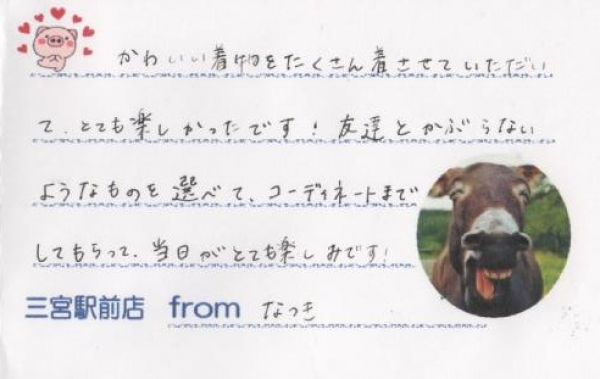 かわいい着物をたくさん着させていただい
て、とても楽しかったです！友達とかぶらない
ようなものを選べて、コーディネートまで
してもらって、当日がとても楽しみです！
三宮駅前店 from なつき